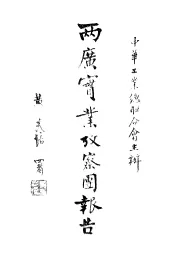 中華工業總聯合會主辦
兩廣實業攷察團報告
黃炎培署